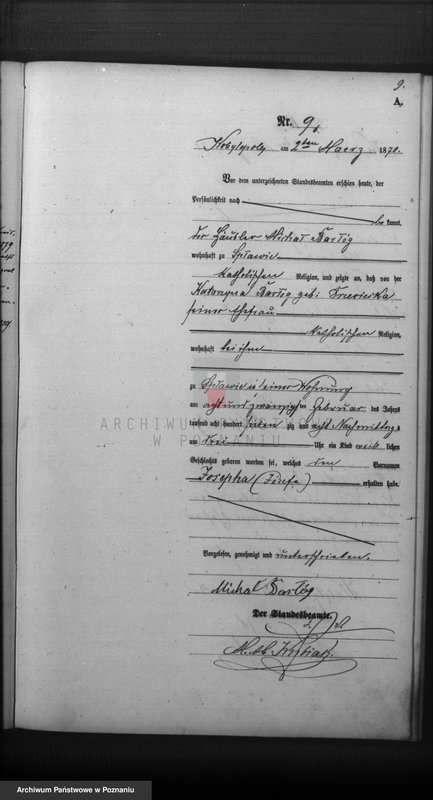 9.
A.
Nr. 9.
Kobylepole am 2ten Maerz 1878.
Vor dem unterzeichneten Standesbeamten erschien heute, der
Persönlichkeit nach
be kannt,
der Häusler Michał Bartóg
wohnhaft zu Spławie
katholischen Religion, und zeigte an, daß von der
Katarzyna Bartóg geb.
seiner Ehefrau
katholischen Religion,
wohnhaft bei ihm
zu Spławie in seiner Wohnung
am acht und zwanzigsten Februar des Jahres
tausend acht hundert sieben zig und acht Nachmittags
um drei Uhr ein Kind weib lichen
Geschlechts geboren worden sei, welches den Vornamen
Josepha (Józefa)
erhalten habe.
Vorgelesen, genehmigt und unterschrieben.
Michał Bartóg
Der Standesbeamte.
ARCHIWUM PAŃSTWOWE
W POZNANIU
Archiwum Państwowe w Poznaniu